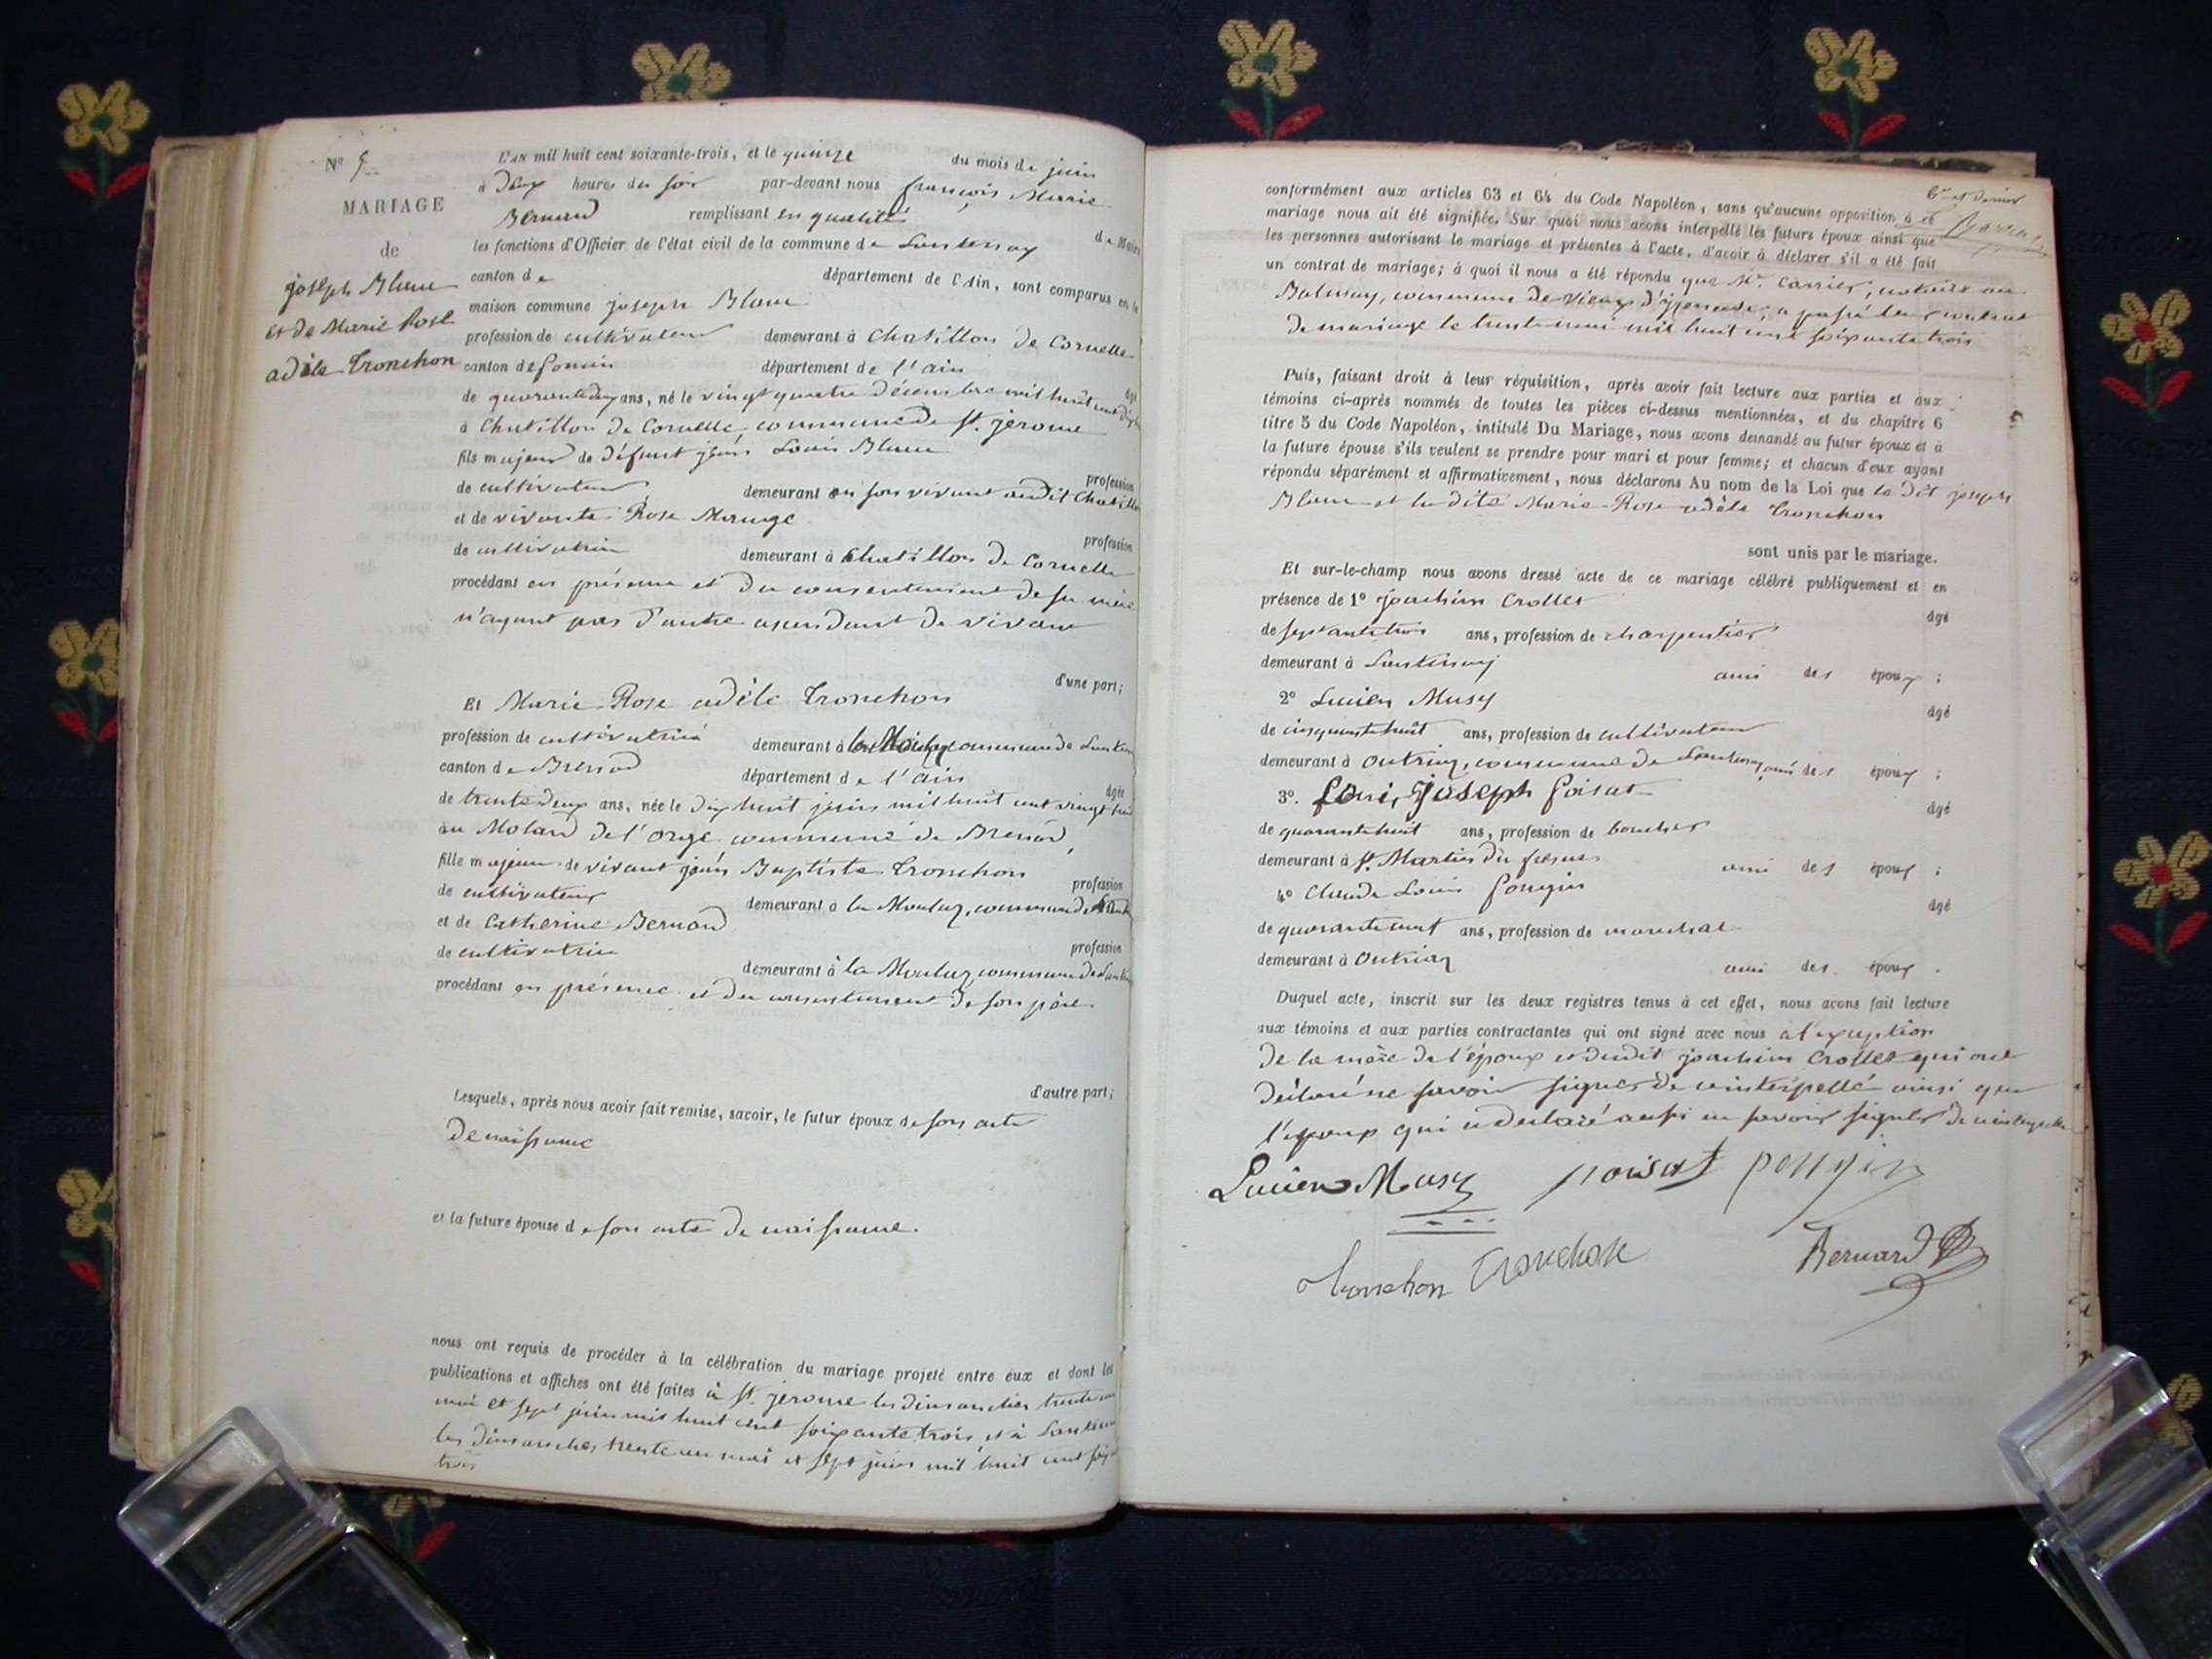 Nº 5
MARIAGE
de
joseph Blanc
et de Marie Rose
adèle Tronchon
L'AN mil huit cent soixante-trois, et le quinze du mois de juin
à Deux heures du soir par-devant nous françois Marie
Bernard remplissant en qualité de Maire
les fonctions d'Officier de l'état civil de la commune de Lantenay
canton de département de l'Ain, sont comparus en la
maison commune joseph Blanc
profession de cultivateur demeurant à Chatillon de Cornelle
canton de département de l'ain
âgé
de quarante deux ans, né le vingt quatre décembre mil huit cent
à Chatillon de Cornelle commune de St. jerome
fils majeur de défunt Louis Blanc
profession
de cultivateur demeurant en son vivant audit Chatillon
et de vivante Rose Marnage
profession
de cultivatrice demeurant à Chatillon de Cornelle
procédant en présence et du consentement de sa mère
n'ayant pas d'autre ascendant de vivant
d'une part;
Et Marie Rose adèle Tronchon
profession de cultivatrice demeurant à commune de
canton de Brenod département de l'ain
âgée
de trente deux ans, née le dix huit juin mil huit cent vingt
au Molard de l'orge commune de Brenod,
fille majeure de vivant Baptiste Tronchon
profession
de cultivateur demeurant à la Mouluz, commune de
et de Catherine Bernard
profession
de cultivatrice demeurant à la Mouluz commune de
procédant en présence et du consentement de son père
d'autre part;
Lesquels, après nous avoir fait remise, savoir, le futur époux de son acte
de naissance
et la future épouse de son acte de naissance.
nous ont requis de procéder à la célébration du mariage projeté entre eux et dont les
publications et affiches ont été faites à St. jerome les dimanches trente un
mai et sept juin mil huit cent soixante trois et à
les dimanches trente un mai et sept juin mil huit cent
trois
6e et dernier
conformément aux articles 63 et 64 du Code Napoléon, sans qu'aucune opposition à ce
mariage nous ait été signifiée. Sur quoi nous avons interpellé les futurs époux ainsi que
les personnes autorisant le mariage et présentes à l'acte, d'avoir à déclarer s'il a été fait
un contrat de mariage; à quoi il nous a été répondu que Mr. Carrier, notaire au
Balmay, commune de Vieux d'yzenave, a passé leur contrat
de mariage le trente mai mil huit cent soixante trois
Puis, faisant droit à leur réquisition, après avoir fait lecture aux parties et aux
témoins ci-après nommés de toutes les pièces ci-dessus mentionnées, et du chapitre 6
titre 5 du Code Napoléon, intitulé Du Mariage, nous avons demandé au futur époux et à
la future épouse s'ils veulent se prendre pour mari et pour femme; et chacun d'eux ayant
répondu séparément et affirmativement, nous déclarons Au nom de la Loi que le dit joseph
Blanc et la dite Marie Rose adèle Tronchon
sont unis par le mariage.
Et sur-le-champ nous avons dressé acte de ce mariage célébré publiquement et en
présence de 1º joachim Crollet
âgé
de septante trois ans, profession de charpentier
demeurant à Lantenay ami des époux ;
2º Lucien Musy
âgé
de cinquante huit ans, profession de cultivateur
demeurant à Outriaz, commune de Lantenay, ami des époux ;
3º. Louis Joseph Poisat
âgé
de quarante huit ans, profession de boucher
demeurant à St. Martin du fresne ami des époux ;
4º Claude Louis Pongin
âgé
de ans, profession de marechal
demeurant à Outriaz ami des époux .
Duquel acte, inscrit sur les deux registres tenus à cet effet, nous avons fait lecture
aux témoins et aux parties contractantes qui ont signé avec nous à l'exception
de la mère de l'époux et dudit joachim Crollet qui ont
déclaré ne savoir signer de ce interpellé ainsi que
l'epoux qui a declaré aussi ne savoir signer de ce interpellé
Lucien Musy Poisat pongin
Tronchon Tronchon Bernard